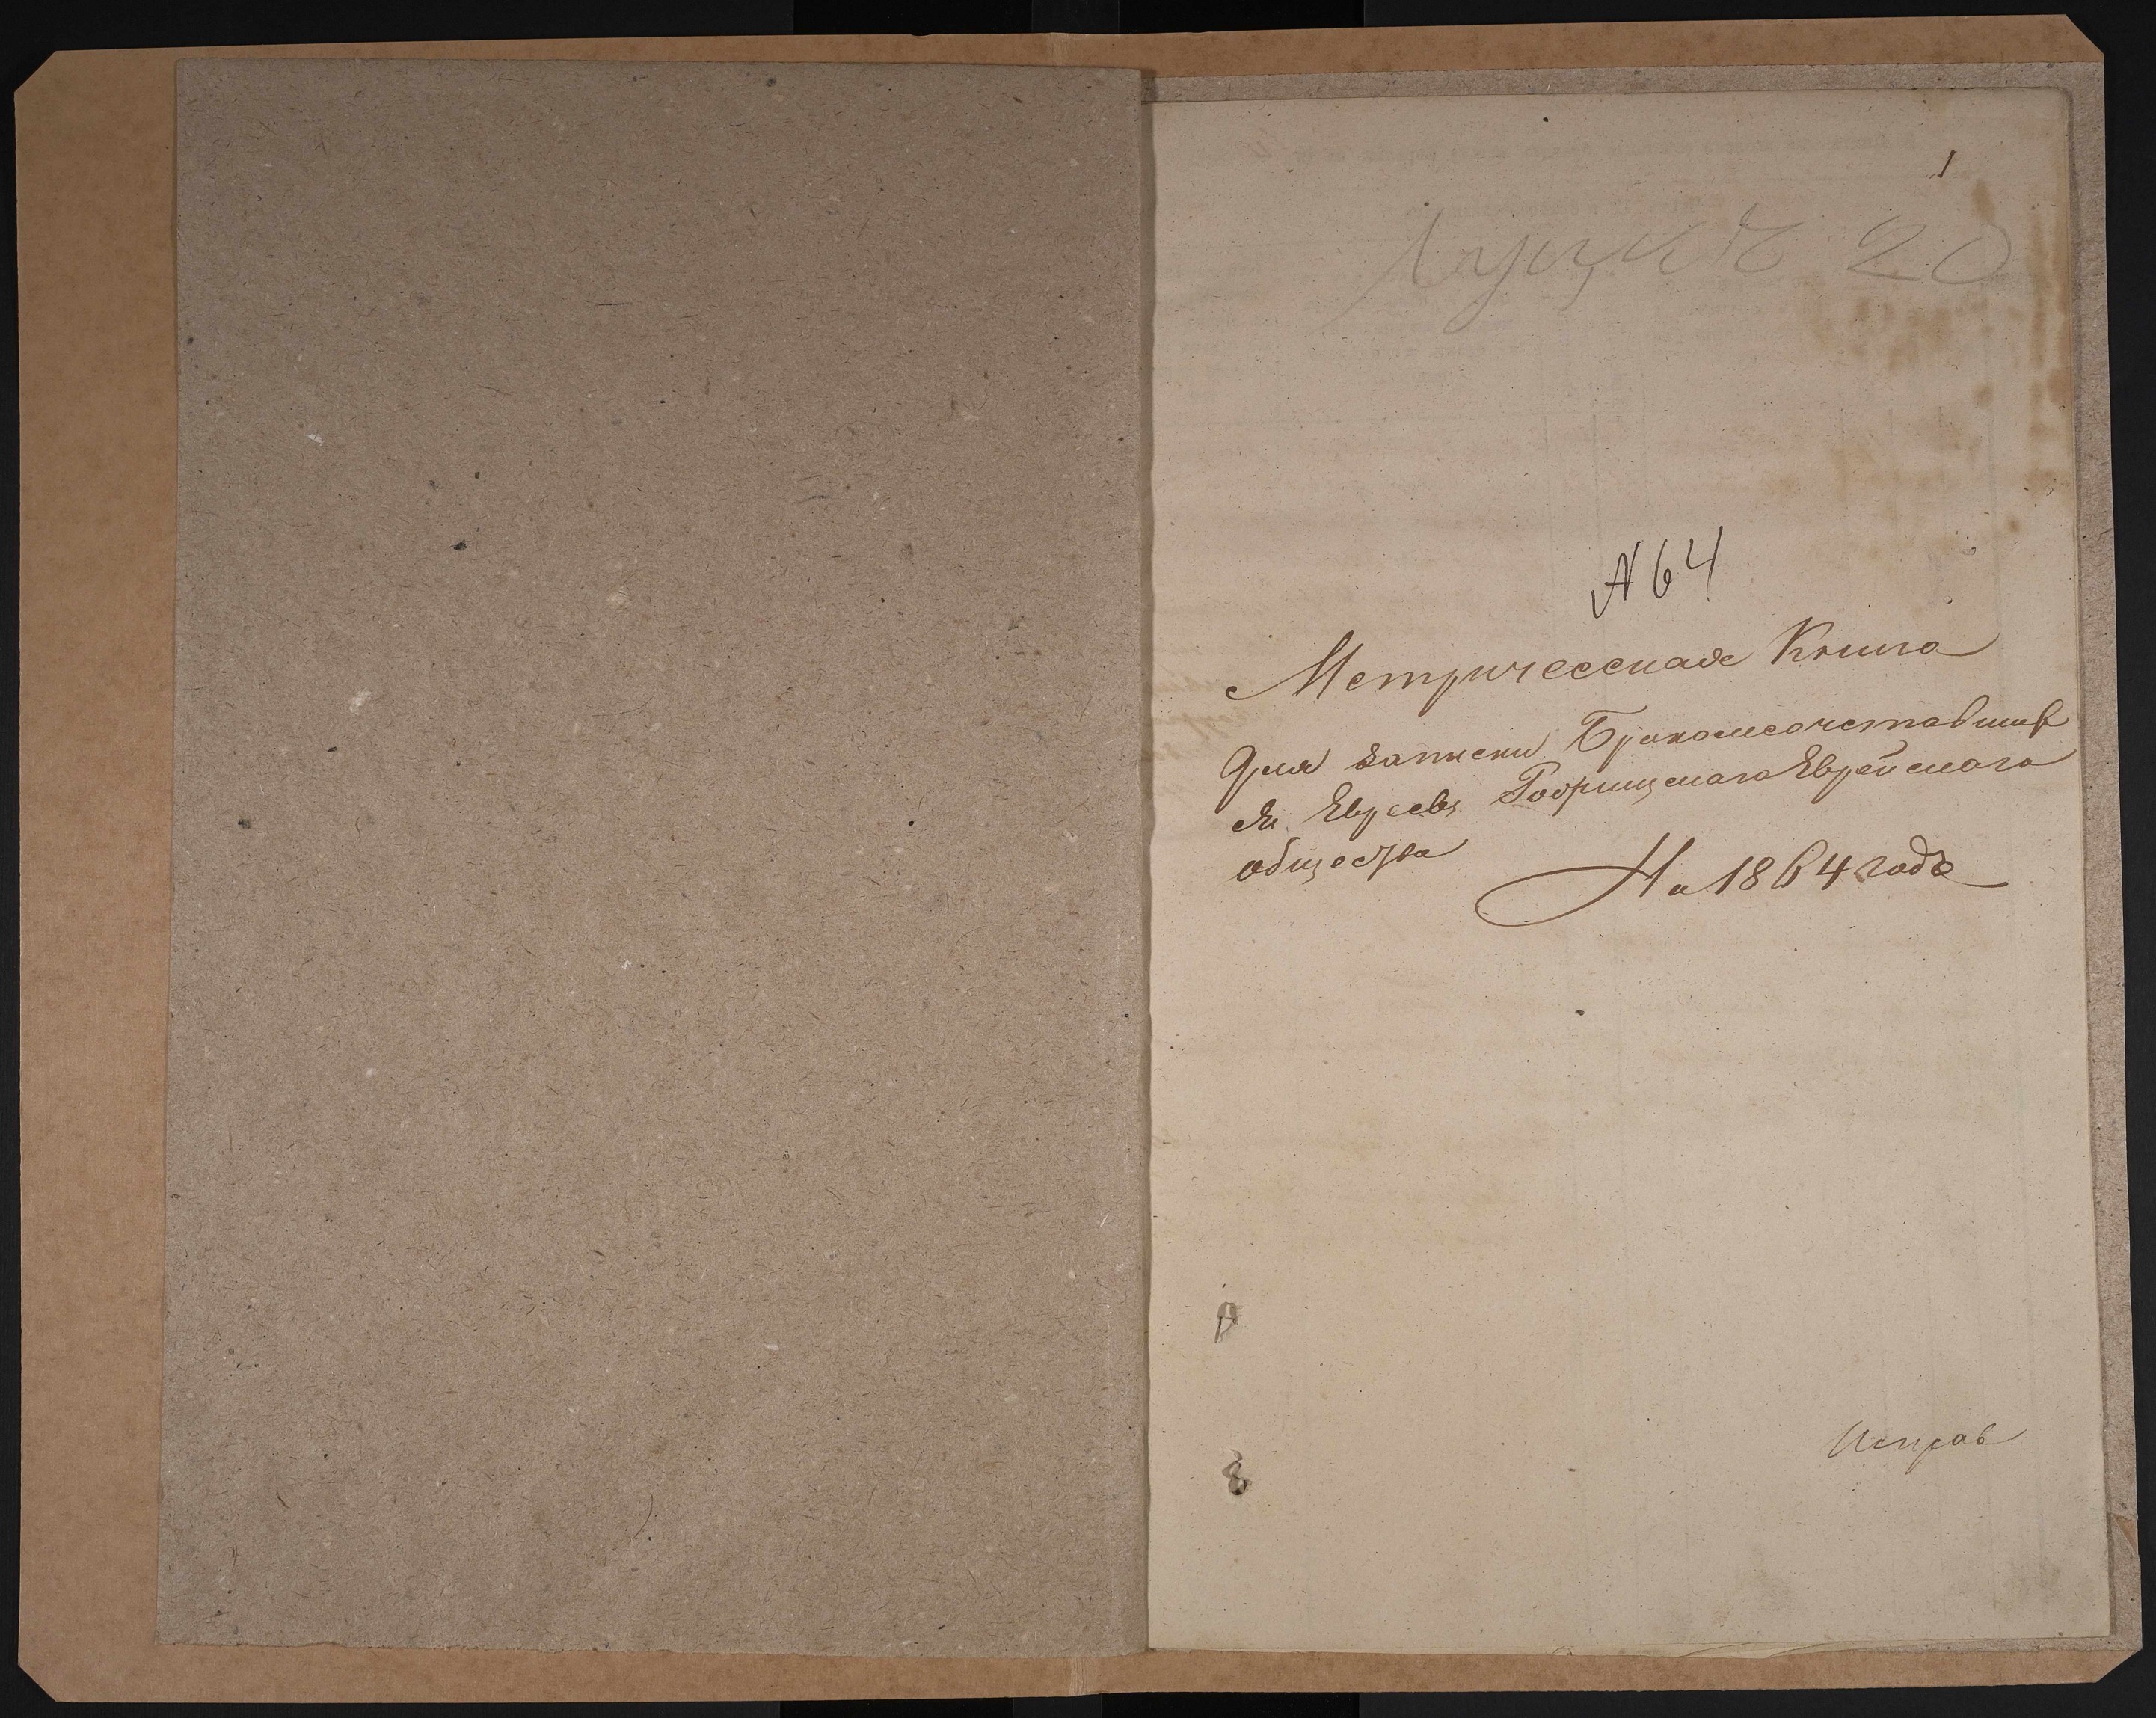 1
Луцкъ 20
№ 64
Метрическая Книга
Для записки Бракосочетавших
ся Евреевъ Рафрищскаго Еврейскаго
общества
На 1864 годъ
Исправ